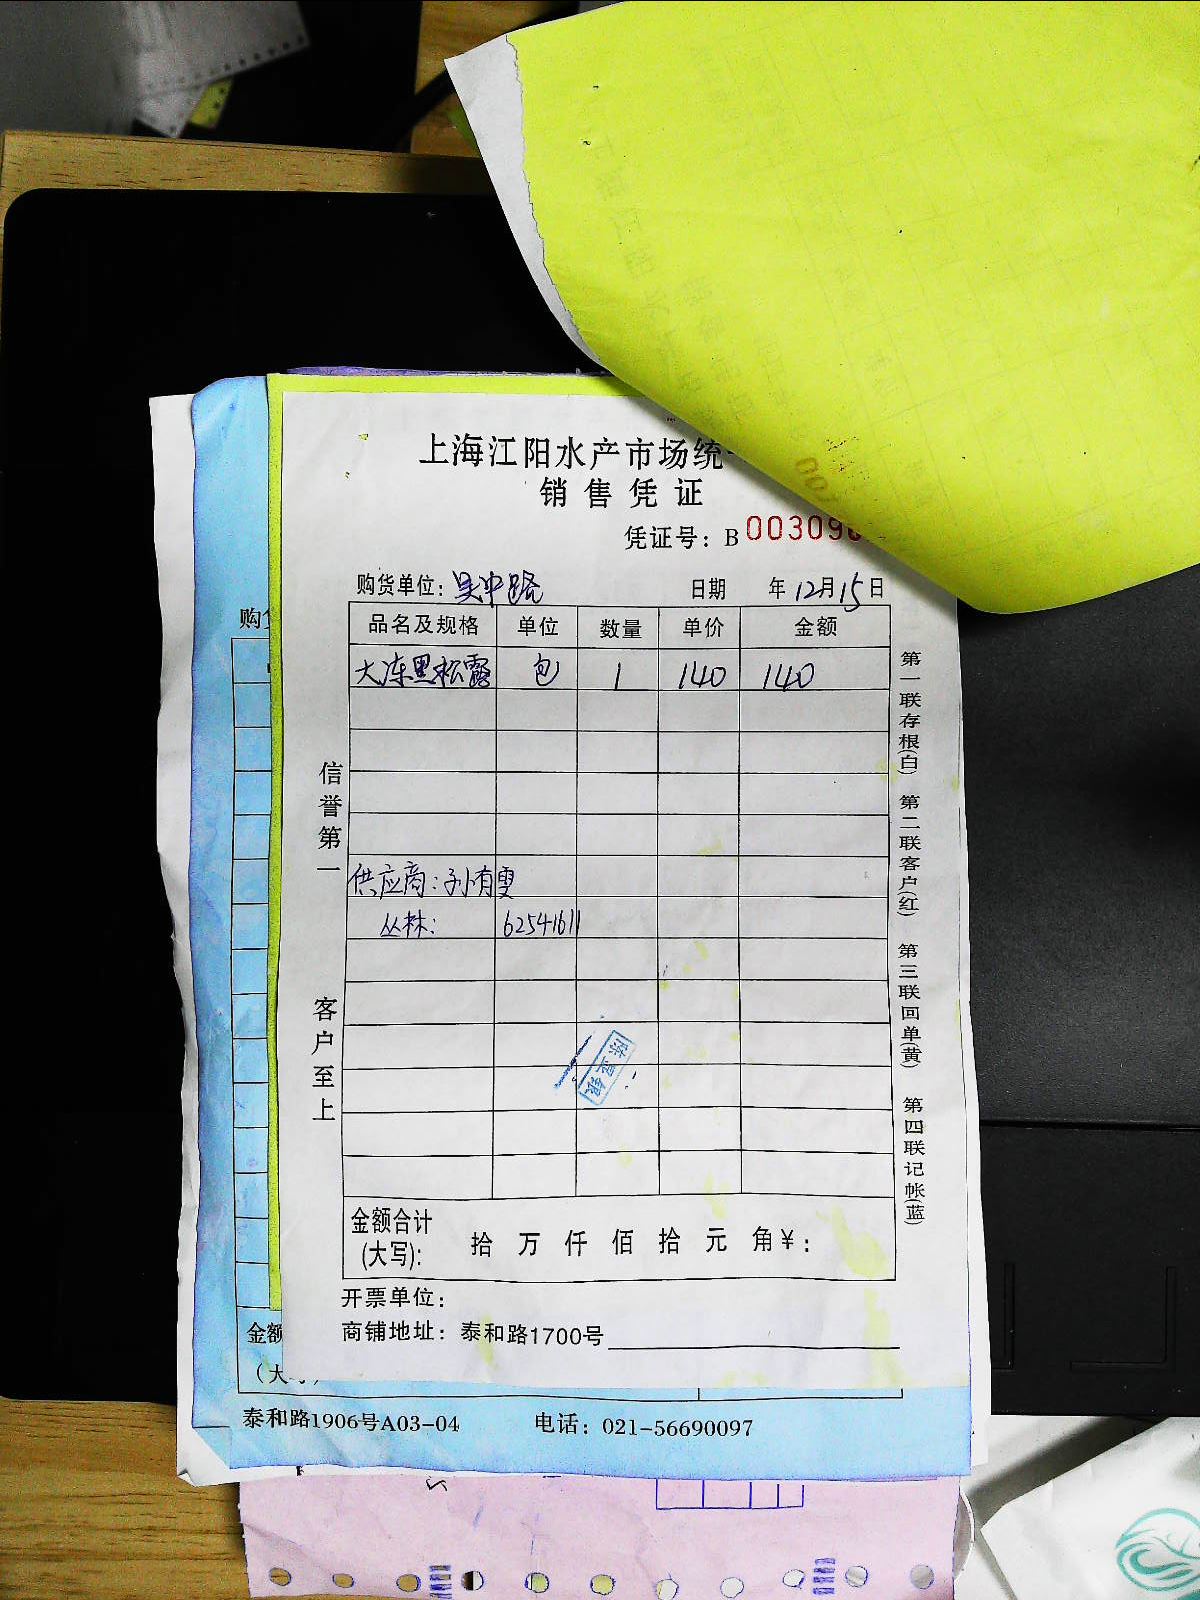 上海江阳水产市场统一
销售凭证
凭证号：B 003090
购货单位：吴中路 日期 年12月15日
品名及规格 单位 数量 单价 金额
大冻黑松露 包 1 140 140
供应商：孙有雯
丛林： 62541611
信誉第一
客户至上
第一联存根(白) 第二联客户(红) 第三联回单(黄) 第四联记帐(蓝)
金额合计
(大写): 拾 万 仟 佰 拾 元 角 ¥：
开票单位：
商铺地址：泰和路1700号
购
金额
（大
泰和路1906号A03-04 电话：021-56690097